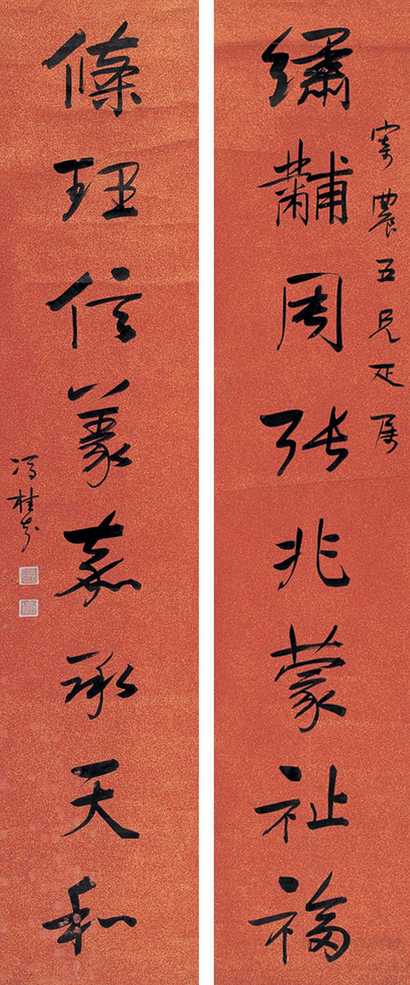 寄農五兄疋属
繡黼周張兆蒙祉福
條理信義嘉承天和
馮桂芬